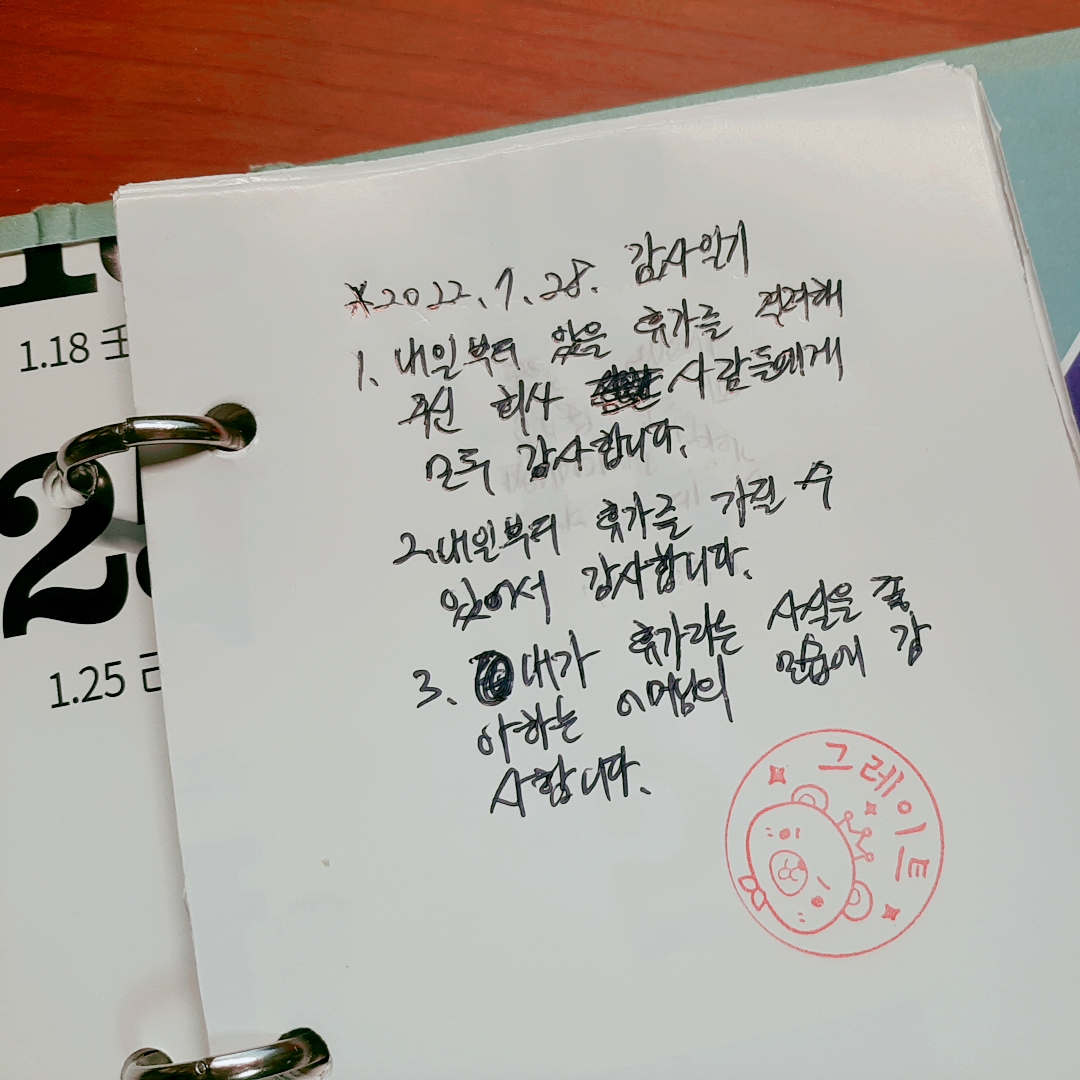 ※2022.1.28. 감사일기
1. 내일부터 있을 휴가를 격려해
주신 회사 사람들에게
모두 감사합니다.
2. 내일부터 휴가를 가질 수
있어서 감사합니다.
3. 내가 휴가라는 사실을 좋
아하는 어머님의 모습에 감
사합니다.
그레이트
1.18
2
1.25